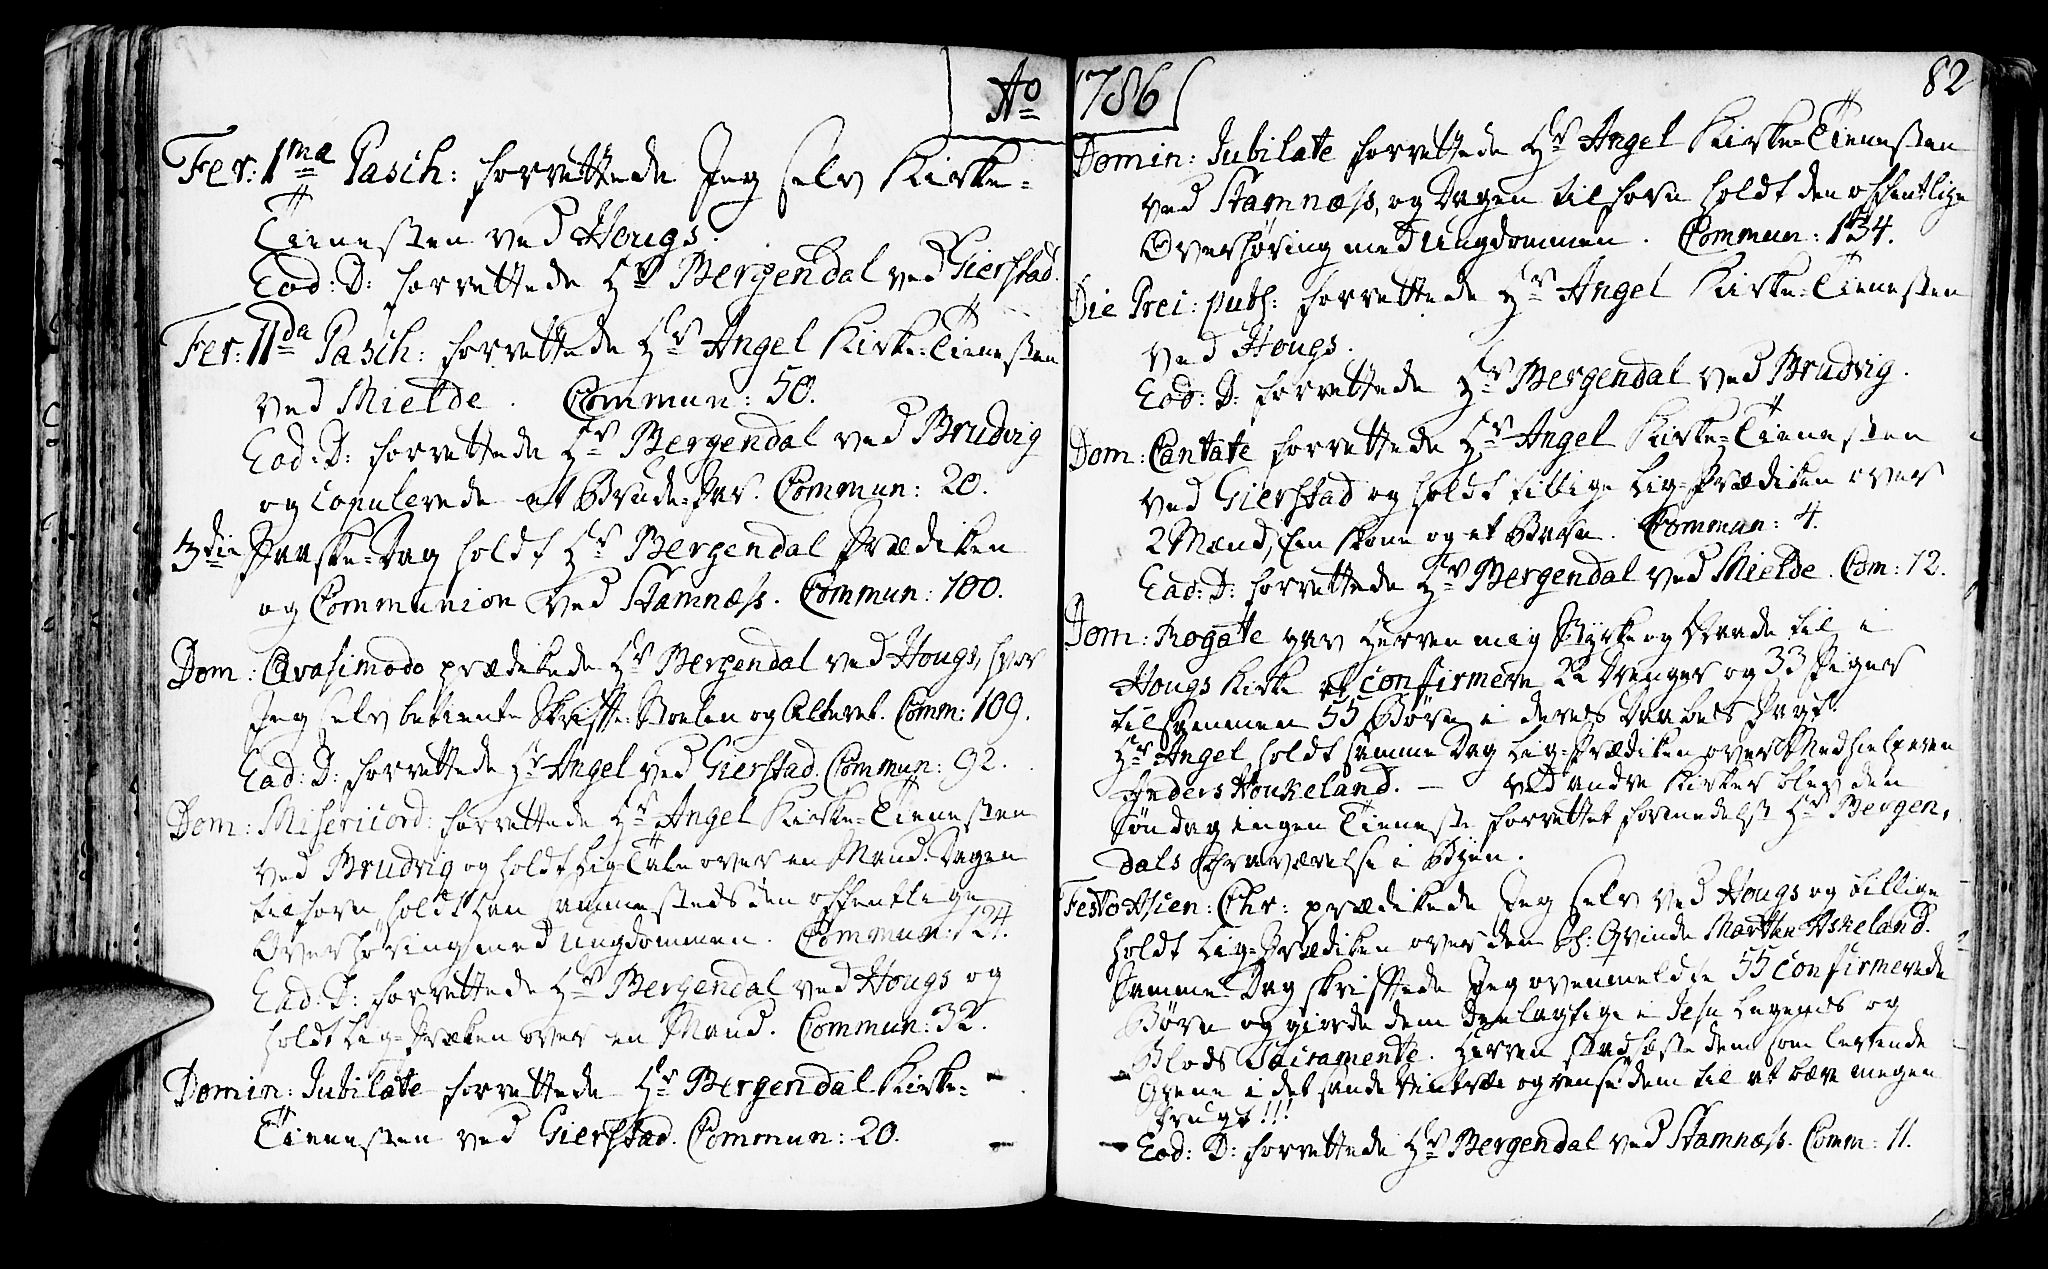 Ao 1786
82
Fer: 1ma Pasch: forrettede Jeg selv Kirke-
Tienesten ved Hougs.
Eod: D: forrettede Hr Bergendal ved Gierstad.
Fer: IIda Pasch: forrettede Hr Angel Kirke-Tienesten
ved Mielde. Commun: 50.
Eod: D: forrettede Hr Bergendal ved Brudvig
og copulerede et Brude-Par. Commun: 20.
3die Paaske-Dag holdt Hr Bergendal Prædiken
og Communion ved Stamnæss. Commun: 100.
Dom: Qvasimodo prædikede Hr Bergendal ved Hougs, hvor
Jeg selv betiente Skrifte-Stolen og Alteret. Comm: 109.
Ead: D: forrettede Hr Angel ved Gierstad. Commun: 92.
Dom: Misericord: forrettede Hr Angel Kirke-Tienesten
ved Brudvig og holdt Lig Tale over en Mand. Dagen
tilforn holdt han sammesteds den offentlige
Overhøring med Ungdommen. Commun: 124.
Ead: D: forrettede Hr Bergendal ved Hougs og
holdt Lig-Præken over en Mand. Commun: 32.
Domin: Jubilate forrettede Hr Bergendal Kirke-
Tienesten ved Gierstad. Commun: 20.
Domin: Jubilate forrettede Hr Angel Kirke-Tienesten
ved Stamnæss, og Dagen tilforn holdt den offentlige
Overhøring med Ungdommen. Commun: 134.
Die Prei: publ: forrettede Hr Angel Kirke-Tienesten
ved Hougs.
Eod: D: forrettede Hr Bergendal ved Brudvig.
Dom: Cantate forrettede Hr Angel Kirke-Tienesten
ved Gierstad og holdt tillige Lig-Prædiken over
2 Mænd, En Kone og et Barn. Commun: 4.
Ead: D: forrettede Hr Bergendal ved Mielde. Com: 12.
Dom: Rogate gav Herren mig Styrke og Naade til i
Hougs Kirke at confirmere 22 Drenger og 33 Piger
tilsammen 55 Børn i deres Daabes Pagt.
Hr Angel holdt samme Dag Lig-Prædiken over Medhielperen
Anders Houkeland. – ved andre Kirker blev den
Søndag ingen Tieneste forrettet formedelst Hr Bergen,
dals Fraværelse i Byen.
Festo Ascen: Chr: prædikede Jeg selv ved Hougs og tillige
holdt Lig-Prædiken over den Qvinde Marthe Askeland.
Samme Dag skriftede Jeg ovenmeldte 55 confirmerede
Børn og giorde dem deelagtige i Jesu Legems og
Blods Sacramente. Herren stadfæste dem som levende
Grene i det sande Viintræ og rense dem til at bære megen
Frugt!!!
Eod: D: forrettede Hr Bergendal ved Stamnæss. Comm: 11.